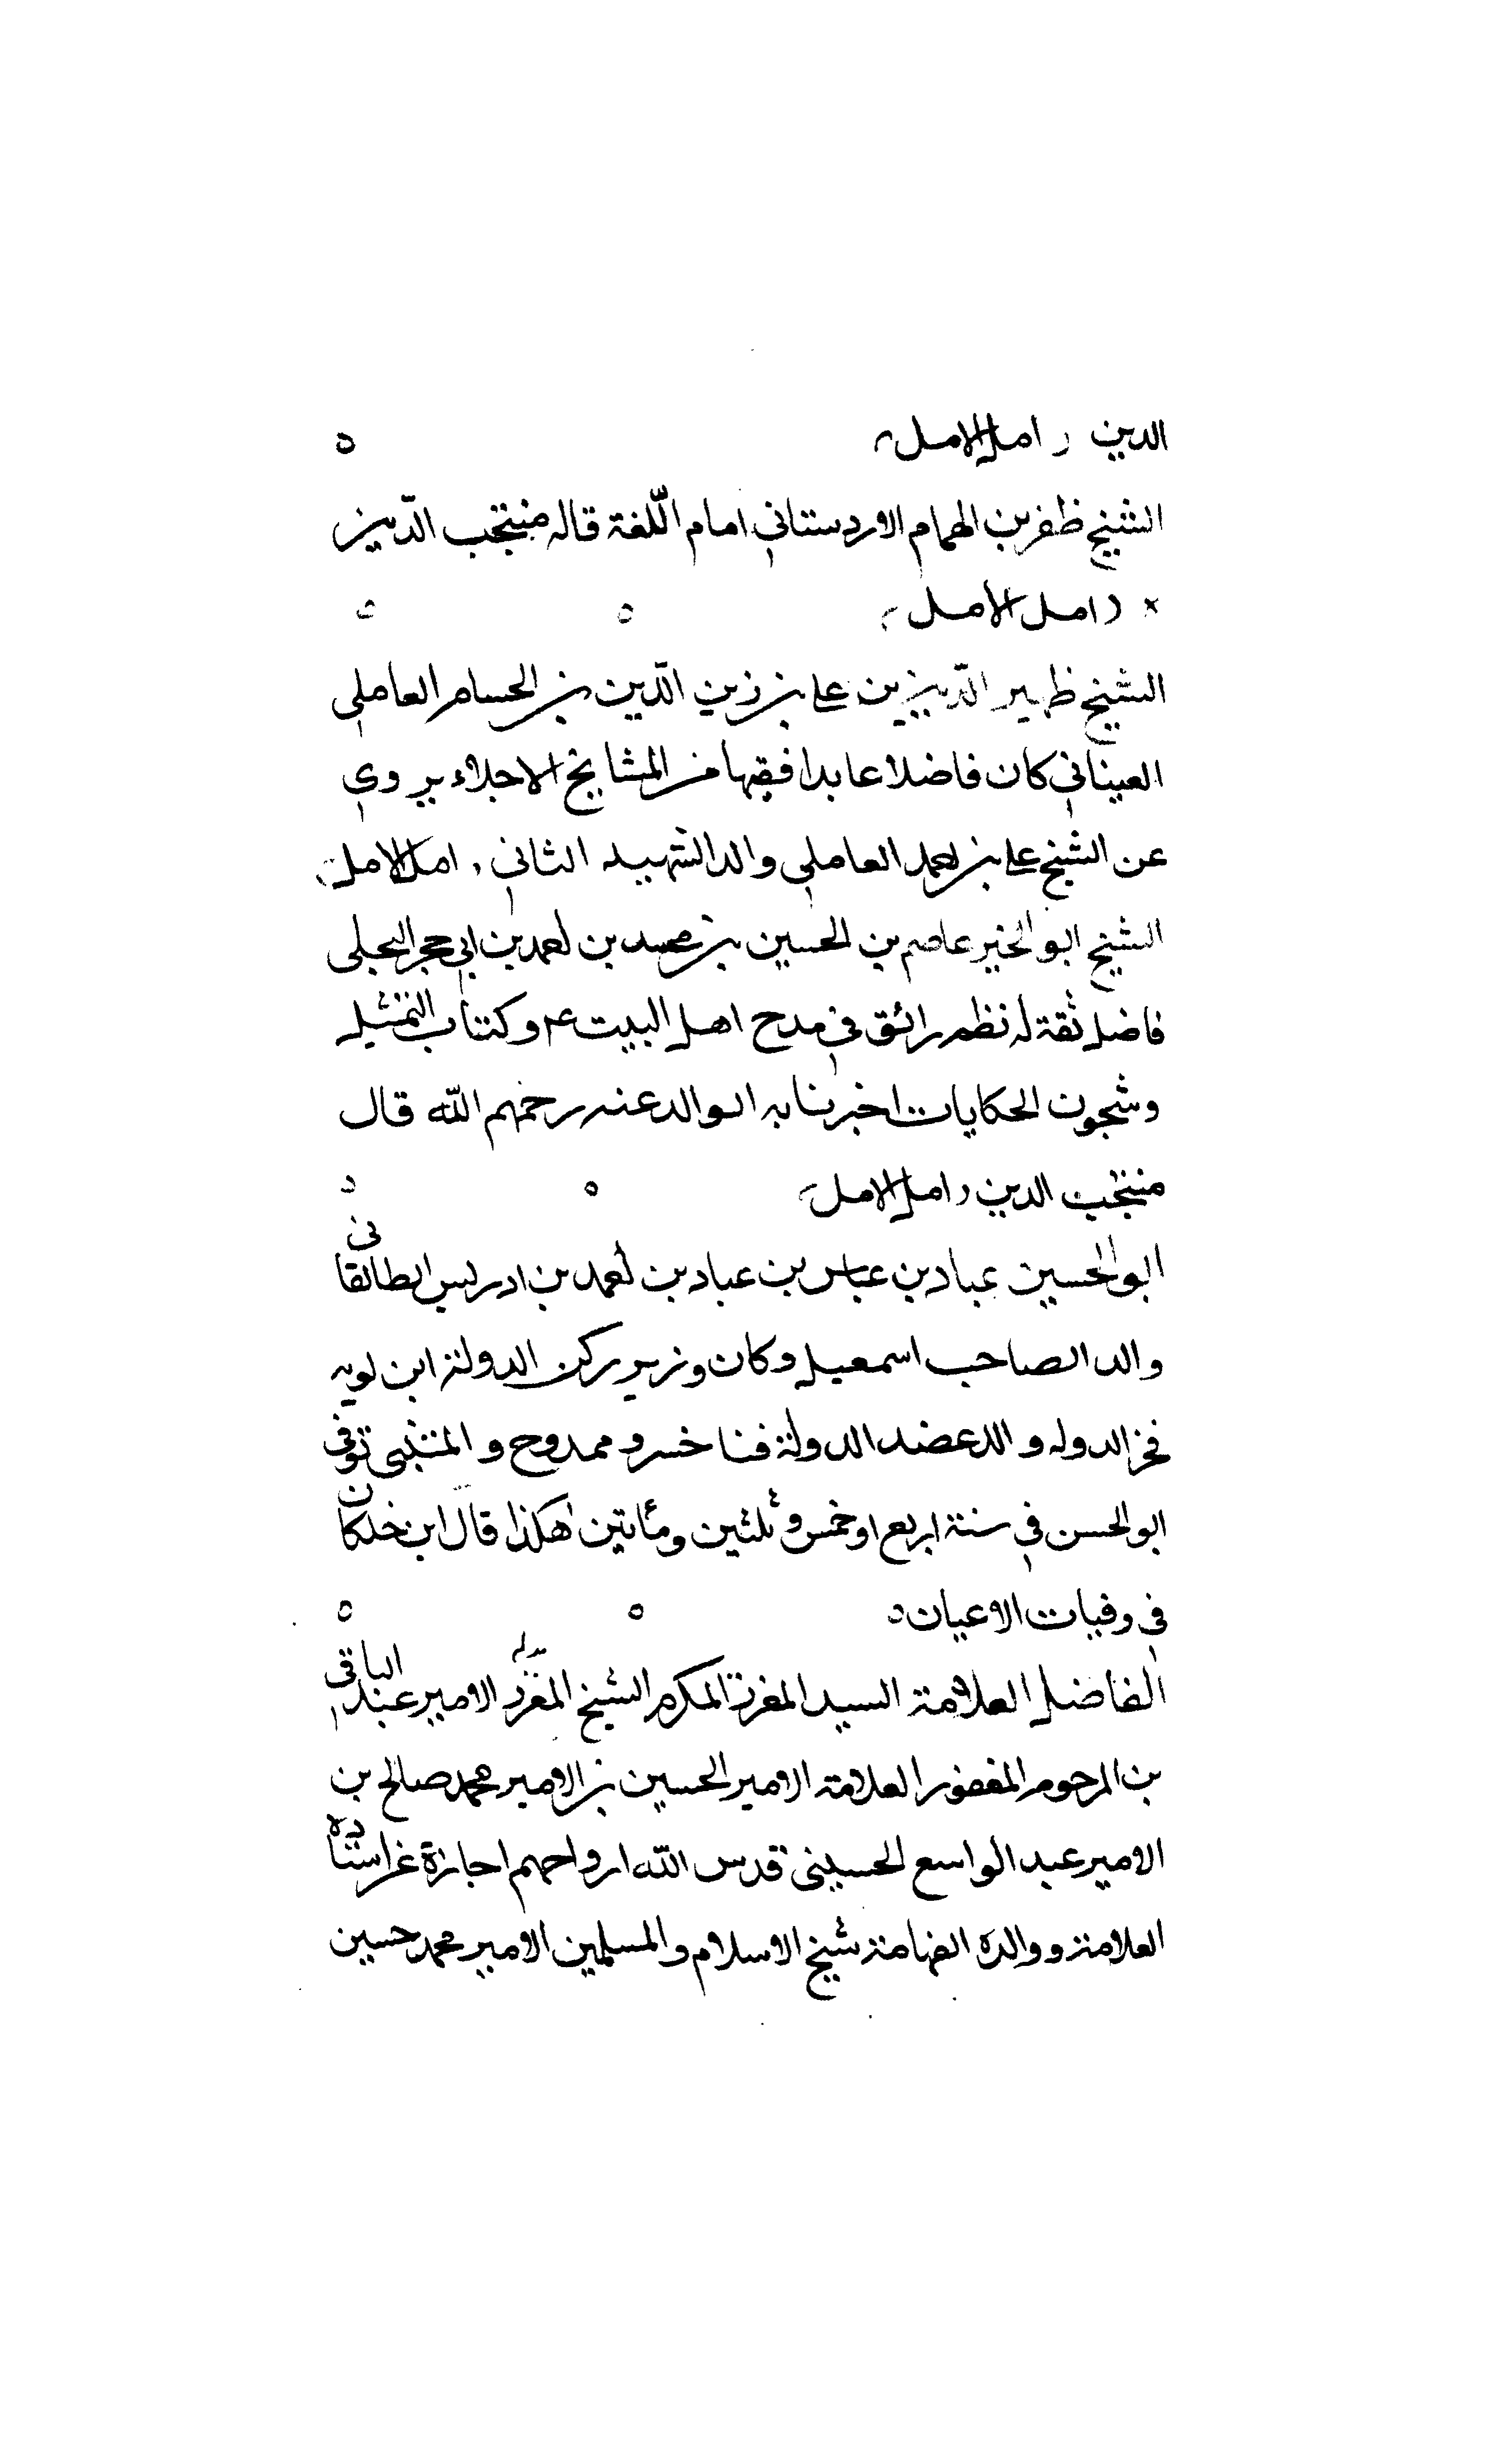 الدين ر امل الامل
الشيخ ظفر بن الهمام الاردستاني امام اللّغة قاله منتجب الدّين
ر امل الامل
الشيخ ظهير الدّين بن علي بن زين الدّين بن الحسام العاملي
العيناني كان فاضلا عابدا فقيها من المشايخ الاجلاء يروي
عن الشيخ علي بن احمد العاملي والد الشهيد الثاني ر امل الامل
الشيخ ابو الخير عاصم بن الحسين بن محمد بن احمد بن ابي حجر العجلي
فاضل ثقة له نظم رائق في مدح اهل البيت ع وكتاب التمثيل
وشجون الحكايات اخبرنا به الوالد عنه رحمهم اللّه قال
منتجب الدين ر امل الامل
ابو الحسين عباد بن عباس بن عباد بن احمد بن ادريس الطالقاني
والد الصاحب اسمعيل وكان وزير ركن الدولة ابن بويه
فخر الدوله و الد عضد الدولة فنا خسرو ممدوح و المتنبي توفي
ابو الحسن في سنة اربع او خمس وثلثين ومأتين هكذا قال ابن خلكان
في وفيات الاعيان
الفاضل العلامة السيد المكرم الشيخ الامير عبد الباقي
بن المرحوم المغفور العلامة الامير الحسين بن الامير محمد صالح بن
الامير عبد الواسع الحسيني قدس اللّه ارواحهم اجازة عن استاده
العلامة و والده الفهامة شيخ الاسلام والمسلمين الامير محمد حسين